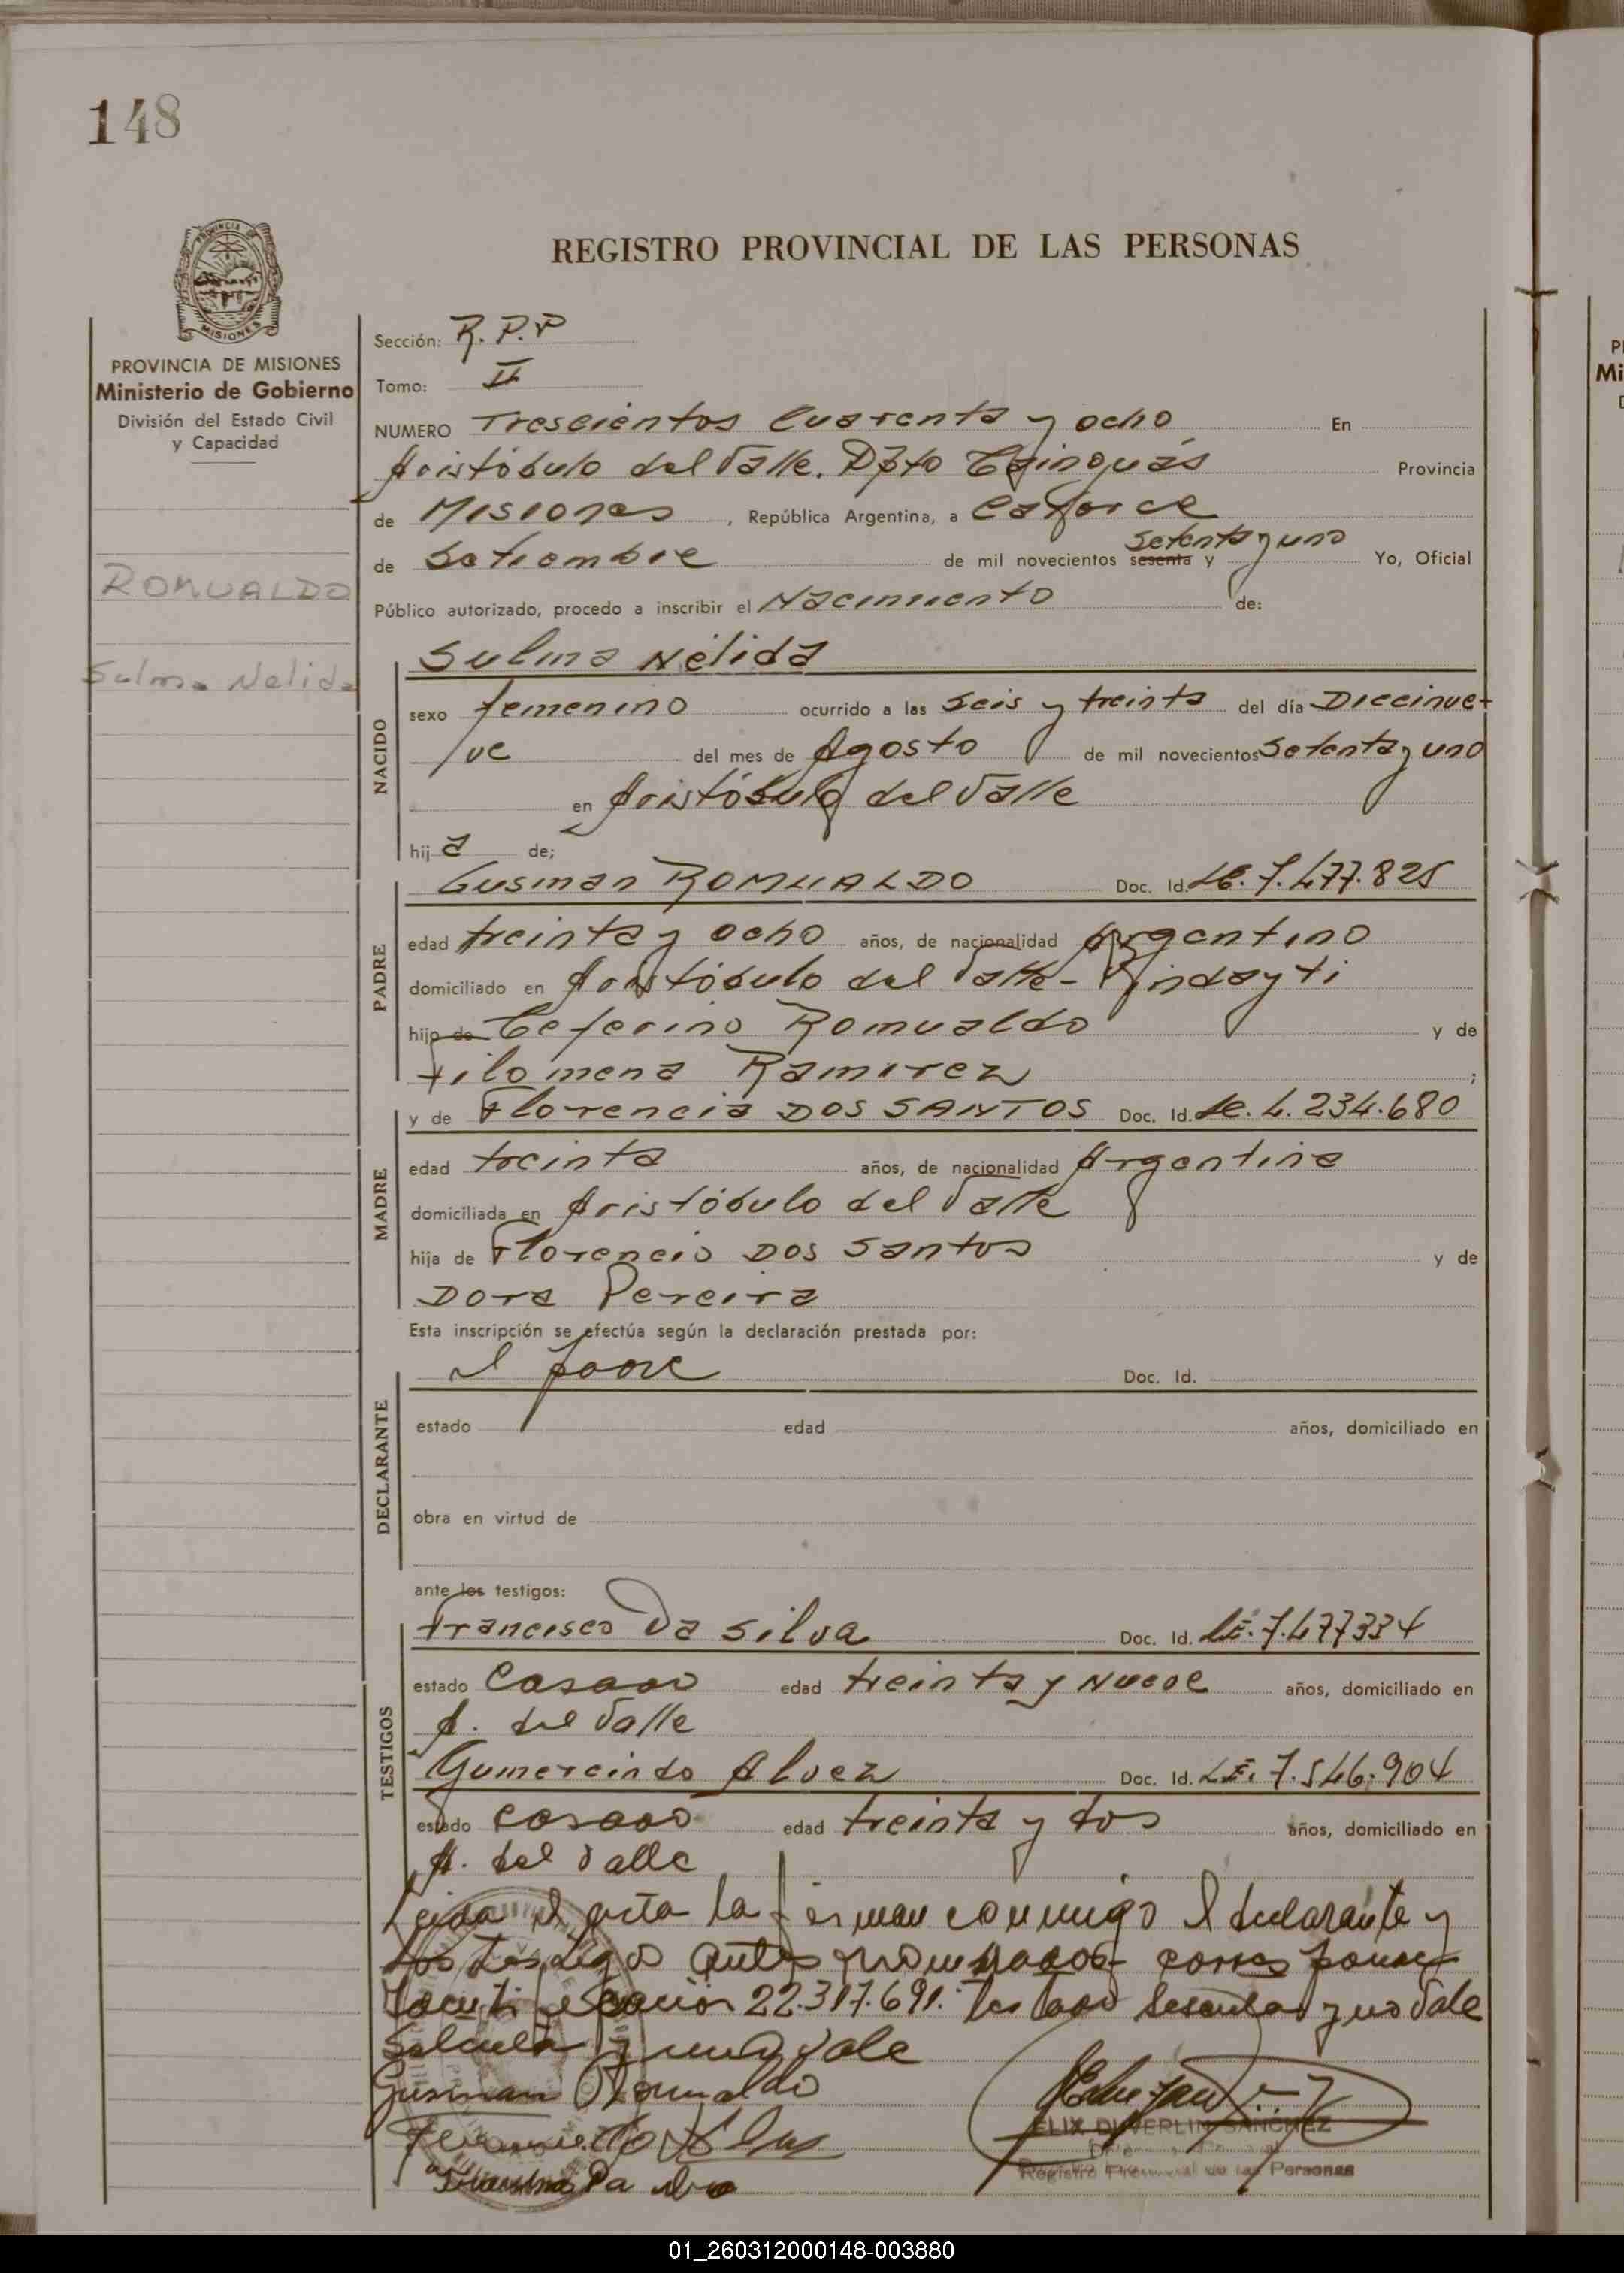 148
REGISTRO PROVINCIAL DE LAS PERSONAS
PROVINCIA DE
MISIONES
PROVINCIA DE MISIONES
Ministerio de Gobierno
División del Estado Civil
y Capacidad
ROMUALDO
Sulma Nelida
Sección: R.P.P
Tomo: II
NUMERO Trescientos Cuarenta y ocho En
Aristóbulo del Valle. Dpto Cainguás Provincia
de Misiones, República Argentina, a Catorce
de Setiembre de mil novecientos sesenta y setenta y uno Yo, Oficial
Público autorizado, procedo a inscribir el Nacimiento de:
NACIDO
Sulma Nélida
sexo femenino ocurrido a las Seis y treinta del día Diecinue-
/ve del mes de Agosto de mil novecientos Setenta y uno
en Aristóbulo del Valle
hij a de;
PADRE
Gusman ROMUALDO Doc. Id. LE. 7.477.825
edad treinta y ocho años, de nacionalidad Argentino
domiciliado en Aristóbulo del Valle-
hijo de Ceferino Romualdo y de
Filomena Ramirez ;
MADRE
y de Florencia DOS SANTOS Doc. Id. Lc. 4.234.680
edad treinta años, de nacionalidad Argentina
domiciliada en Aristóbulo del Valle
hija de Florencio DOS Santos y de
DORA Pereira
Esta inscripción se efectúa según la declaración prestada por:
DECLARANTE
el padre Doc. Id.
estado edad años, domiciliado en
obra en virtud de
ante los testigos:
TESTIGOS
Francisco Da Silva Doc. Id. LE. 7.477334
estado Casado edad treinta y Nueve años, domiciliado en
A. del Valle
Gumercindo Alvez Doc. Id. LE. 7.546.904
estado casado edad treinta y dos años, domiciliado en
A. del Valle
Leida el acta la firman conmigo el declarante y
los testigos antes nombrados corresponde
22.317.691. Testado sesenta y no Vale
y uno vale
Gusman Romualdo
FELIX DUVERLIN SANCHEZ
Registro Provincial de las Personas
01_260312000148-003880